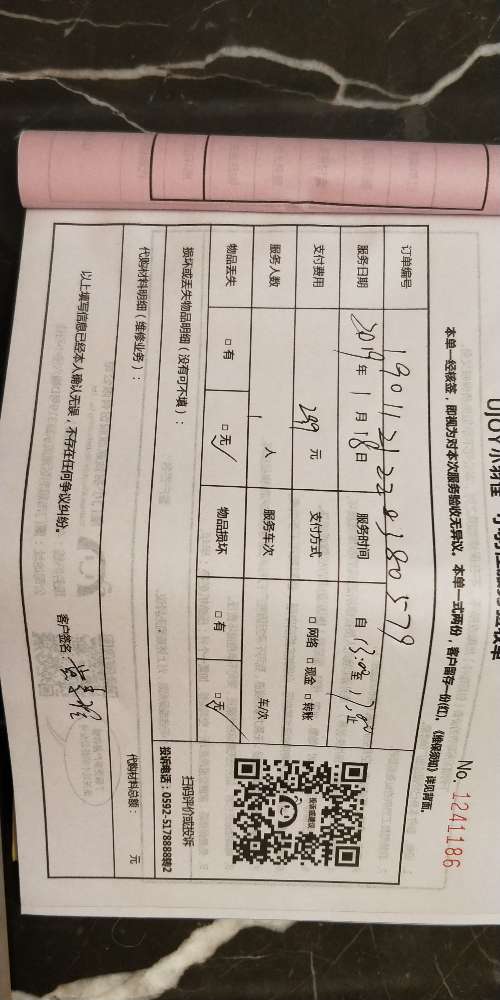 No. 1241186
本单一经核签，即视为对本次服务验收无异议。本单一式两份，客户留存一份(红)。《维保须知》详见背面。
订单编号 190112122838 0579
服务日期 2019年1月18日 服务时间 自13:00至17:00止
支付费用 299元 支付方式 □网络 □现金 □转账
服务人数 1人 服务车次 车次
物品丢失 □有 □无 物品损坏 □有 □无
投诉或建议
扫码评价或投诉
投诉电话：0592-5178888转2
损坏或丢失物品明细（没有可不填）：
代购材料明细（维修业务）：
代购材料总额： 元
以上填写信息已经本人确认无误，不存在任何争议纠纷。
客户签名：